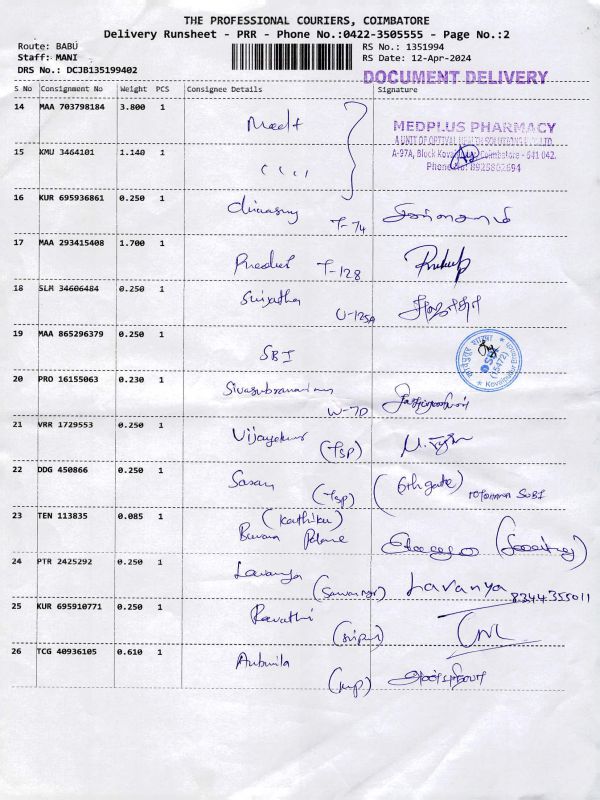 THE PROFESSIONAL COURIERS, COIMBATORE
Delivery Runsheet - PRR - Phone No.:0422-3505555 - Page No.:2
Route: BABU
RS No.: 1351994
Staff: MANI
RS Date: 12-Apr-2024
DRS No.: DCJB135199402
DOCUMENT DELIVERY
S No Consignment No Weight PCS Consignee Details Signature
14 MAA 703798184 3.800 1
MEDPLUS PHARMACY
A UNIT OF OPTIVAL HEALTH SOLUTIONS
15 KMU 3464101 1.140 1
A-97A, Block Coimbatore - 641 042.
16 KUR 695936861 0.250 1
T-74
17 MAA 293415408 1.700 1
T-128
18 SLM 34606484 0.250 1
U-125A
19 MAA 865296379 0.250 1 SBI
(15472)
20 PRO 16155063 0.230 1 Sivasubramaniam
W-70
21 VRR 1729553 0.250 1 Vijayakumar
(Tsp)
22 DDG 450866 0.250 1
(Tsp) (6th gate)
23 TEN 113835 0.085 1
24 PTR 2425292 0.250 1 Lavanya
Lavanya
8344355011
25 KUR 695910771 0.250 1 Revathi
26 TCG 40936105 0.610 1